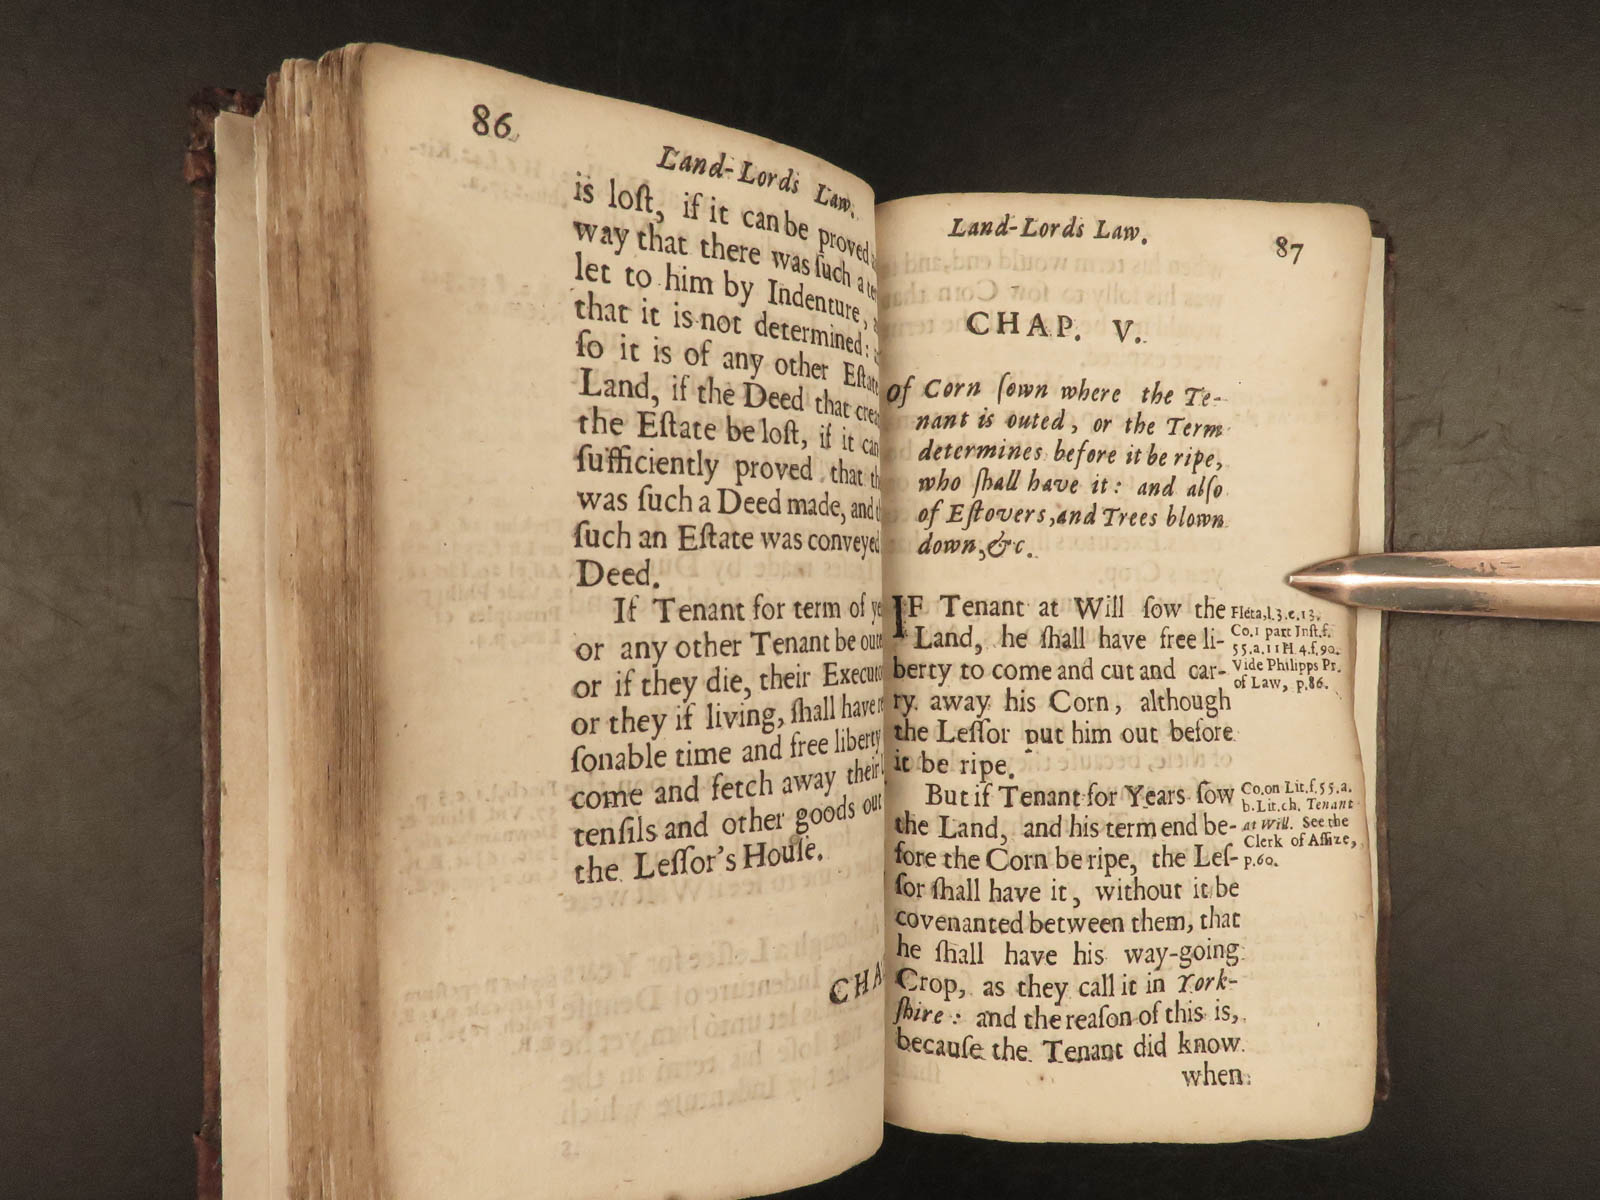 86
Land-Lords Law.
is loſt, if it can be proved
way that there was ſuch a
let to him by Indenture,
that it is not determined:
ſo it is of any other Eſtate
Land, if the Deed that
the Eſtate be loſt, if it can
ſufficiently proved that
was ſuch a Deed made, and
ſuch an Eſtate was conveyed
Deed.
If Tenant for term of
or any other Tenant be
or if they die, their
or they if living, ſhall have
ſonable time and free liberty
come and fetch away their
tenſils and other goods out
the Leſſor's Houſe.
87
Land-Lords Law.
CHAP. V.
of Corn ſown where the Te-
nant is outed, or the Term
determines before it be ripe,
who ſhall have it: and alſo
of Eſtovers, and Trees blown
down, &c.
IF Tenant at Will ſow the
Land, he ſhall have free li-
berty to come and cut and car-
ry away his Corn, although
the Leſſor put him out before
it be ripe.
Fleta, l.3. c.13.
Co. 1 part Inſt. f.
55. a. 11 H. 4. f. 90.
Vide Philipps Pr.
of Law, p. 86.
But if Tenant for Years ſow
the Land, and his term end be-
fore the Corn be ripe, the Leſ-
ſor ſhall have it, without it be
covenanted between them, that
he ſhall have his way-going
Crop, as they call it in York-
ſhire: and the reaſon of this is,
becauſe the Tenant did know
when
Co. on Lit. f. 55. a.
b. Lit. ch. Tenant
at Will. See the
Clerk of Aſſize,
p. 60.